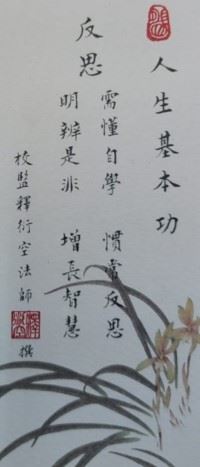 人生基本功
反思
需懂自學　慣常反思
明辨是非　增長智慧
校監釋衍空法師　撰